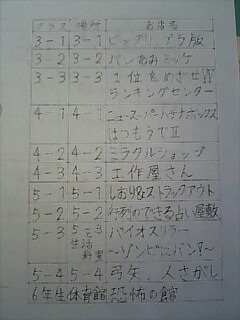 クラス 場所 お店名
3-1 3-1 版
3-2 3-2 パンあみミッケ
3-3 3-3 1位をめざせ!!
ランキングセンター
4-1 4-1 ニュースーパーハテナボックス
はつもうでⅡ
4-2 4-2 ミラクルショップ
4-3 4-3 工作屋さん
5-1 5-1 しおり&ストラックアウト
5-2 5-2 行列のできる占い屋敷
5-3 5-3 バイオスリラー
生活 ～ゾンビにバン!～
5-4 5-4 弓矢、人さがし
6年生 体育館 恐怖の館